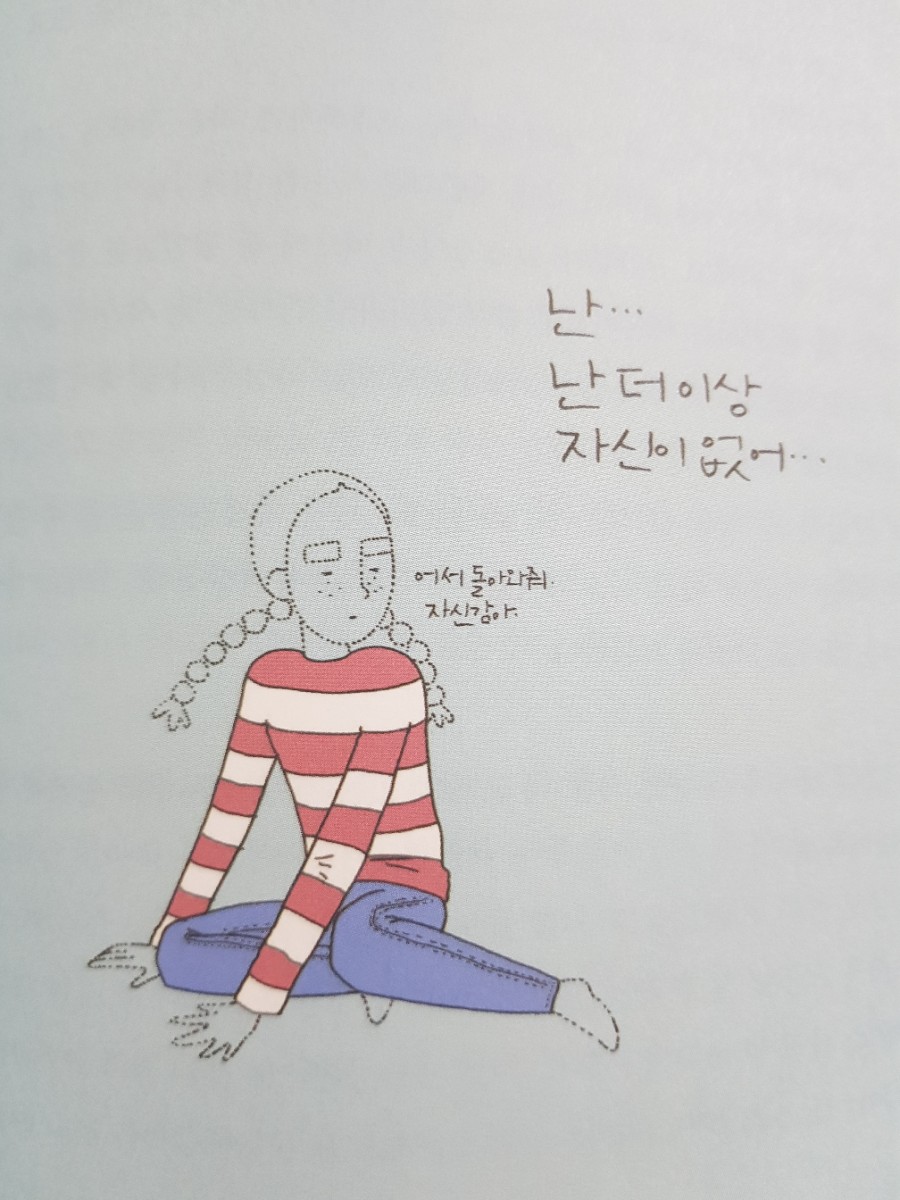 난...
난 더 이상
자신이 없어...
어서 돌아와줘.
자신감아.